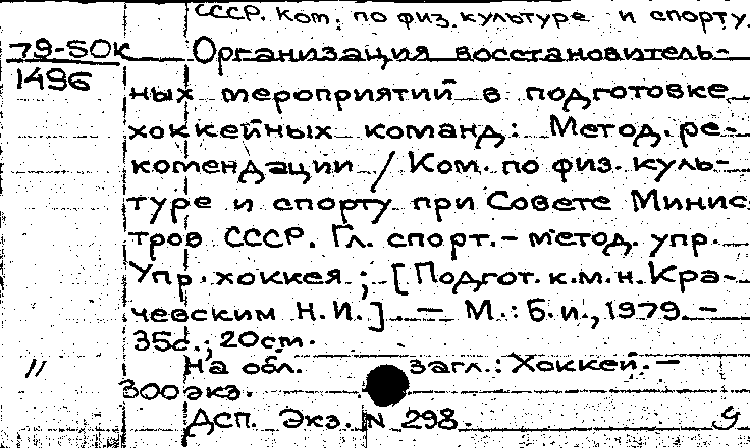 СССР. Ком. по физ. культуре и спорту.
79-50к
1496
Организация восстановитель-
ных мероприятий в подготовке
хоккейных команд: Метод. ре-
комендации / Ком. по физ. куль-
туре и спорту при Совете Минис
тров СССР. Гл. спорт.-метод. упр.
Упр. хоккея ; [Подгот. к.м.н. Кра-
чевским Н.И.]. — М.: Б.и., 1979. —
35с.; 20см.
" На обл. загл.: Хоккей. —
300 экз.
ДСП. Экз. N 298.